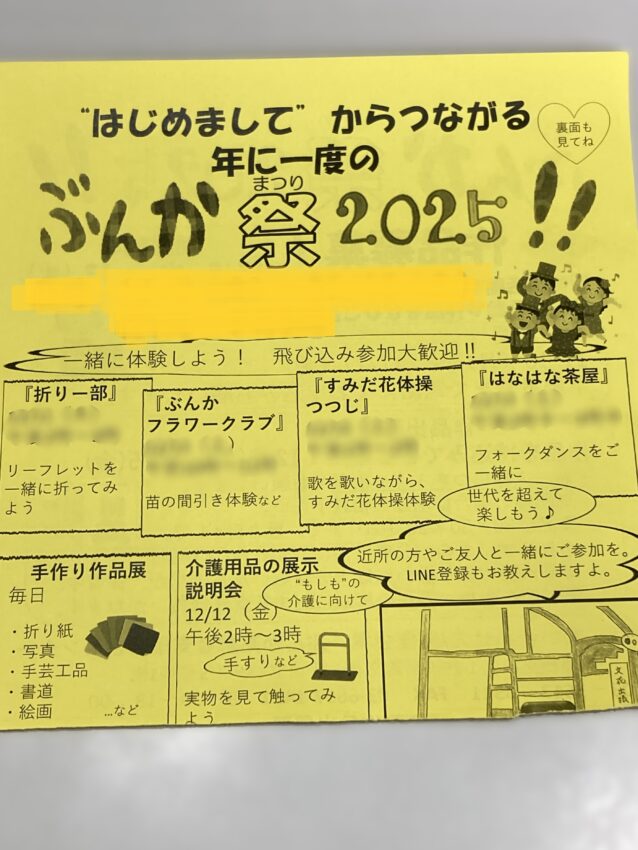 “はじめまして” からつながる
裏面も
見てね
年に一度の
まつり
ぶんか祭2025!!
一緒に体験しよう！ 飛び込み参加大歓迎!!
『折り一部』
リーフレットを
一緒に折ってみ
よう
『ぶんか
フラワークラブ』
苗の間引き体験など
『すみだ花体操
つつじ』
歌を歌いながら、
すみだ花体操体験
『はなはな茶屋』
フォークダンスをご
一緒に
世代を超えて
楽しもう♪
近所の方やご友人と一緒にご参加を。
LINE登録もお教えしますよ。
手作り作品展
毎日
・折り紙
・写真
・手芸工品
・書道
・絵画
…など
介護用品の展示
説明会
12/12（金）
午後2時～3時
“もしも”の
介護に向けて
手すりなど
実物を見て触ってみ
よう